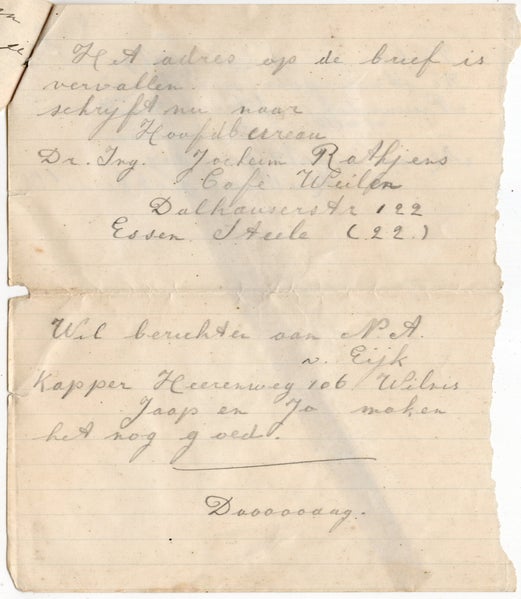 Het adres op de brief is
vervallen.
schrijft nu naar
Hoofdbureau
Dr. Ing. Jocheim Rathjens
Cafe Weilen
Dalhauserstr 122
Essen Steele (22.)
Wil berichten aan N. A.
v. Eijk
Kapper Heerenweg 106 Wilnis
Jaap en Jo maken
het nog goed.
Daaaaaaag.